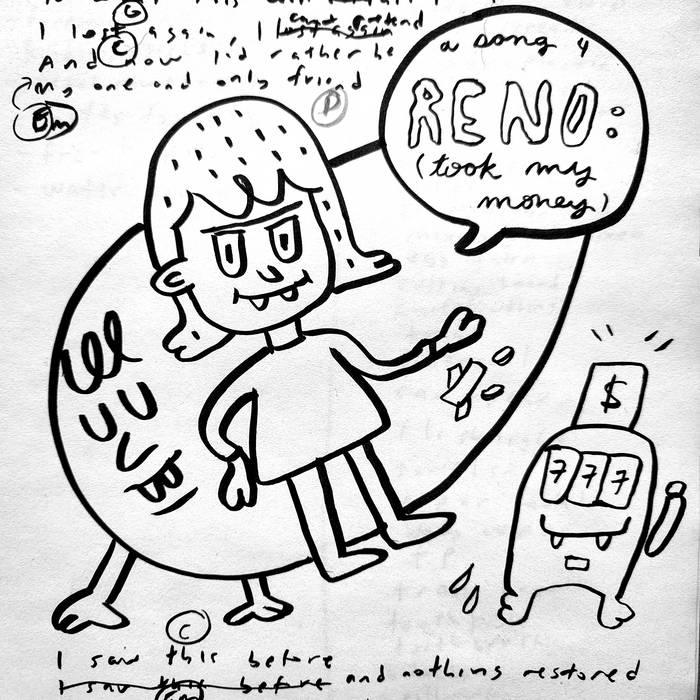 G
I lost again, I cant pretend
C
And now I'd rather be
my one and only friend
Em
D
a song 4
RENO:
(took my
money)
$
777
C
I said this before
I saw this before and nothing restored